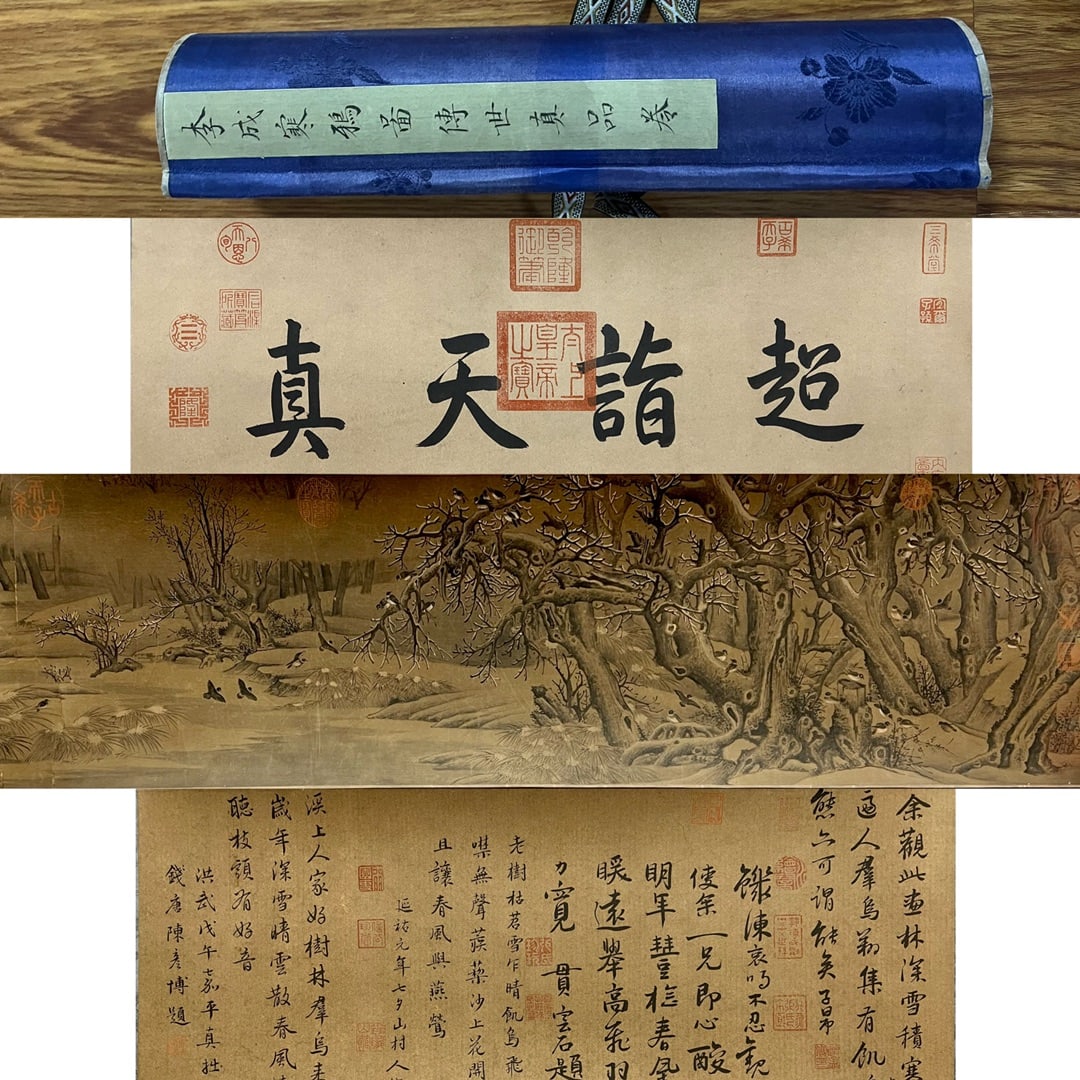 李成寒鴉啚傳世真品卷
超詣天真
乾隆御筆
太上皇帝之寶
三希堂
余觀此畫林深雪積寒
逼人羣烏翔集有飢
態亦可謂能矣子昂
饑凍哀鳴不忍觀
使余一見即心酸
明年豐稔春風
暖遠舉高飛羽
力寬 貫雲石題
老樹枯苕雪乍晴飢烏飛
噤無聲蒺藜沙上花開
且讓春風與燕鶯
延祐元年七夕山村人
溪上人家好樹林羣烏來
歲年深雪晴雲散春風
聽枝頭有好音
洪武戊午嘉平真拙
錢唐陳彥博題